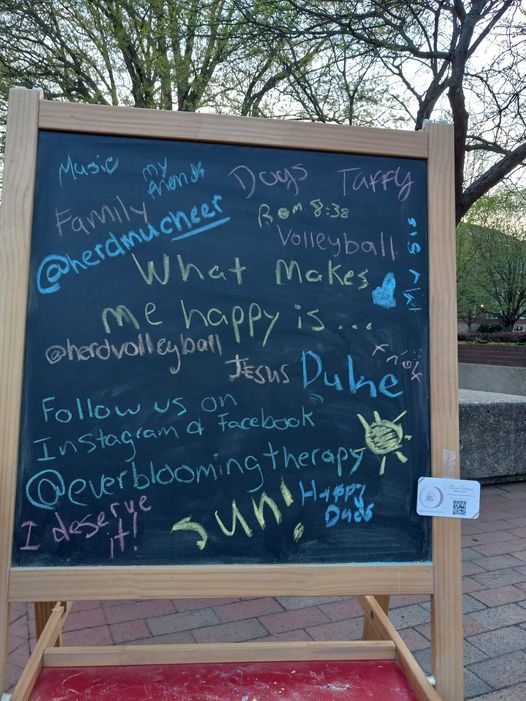 Music
my
friends
Dogs
Taffy
Family
@herdmucheer
Rom 8:38
Volleyball
my sis
What Makes
me happy is...
@herdvolleyball
Jesus
Duke
Follow us on
Instagram & Facebook
@everbloomingtherapy
I deserve
it!
SUN!
Happy
Dads